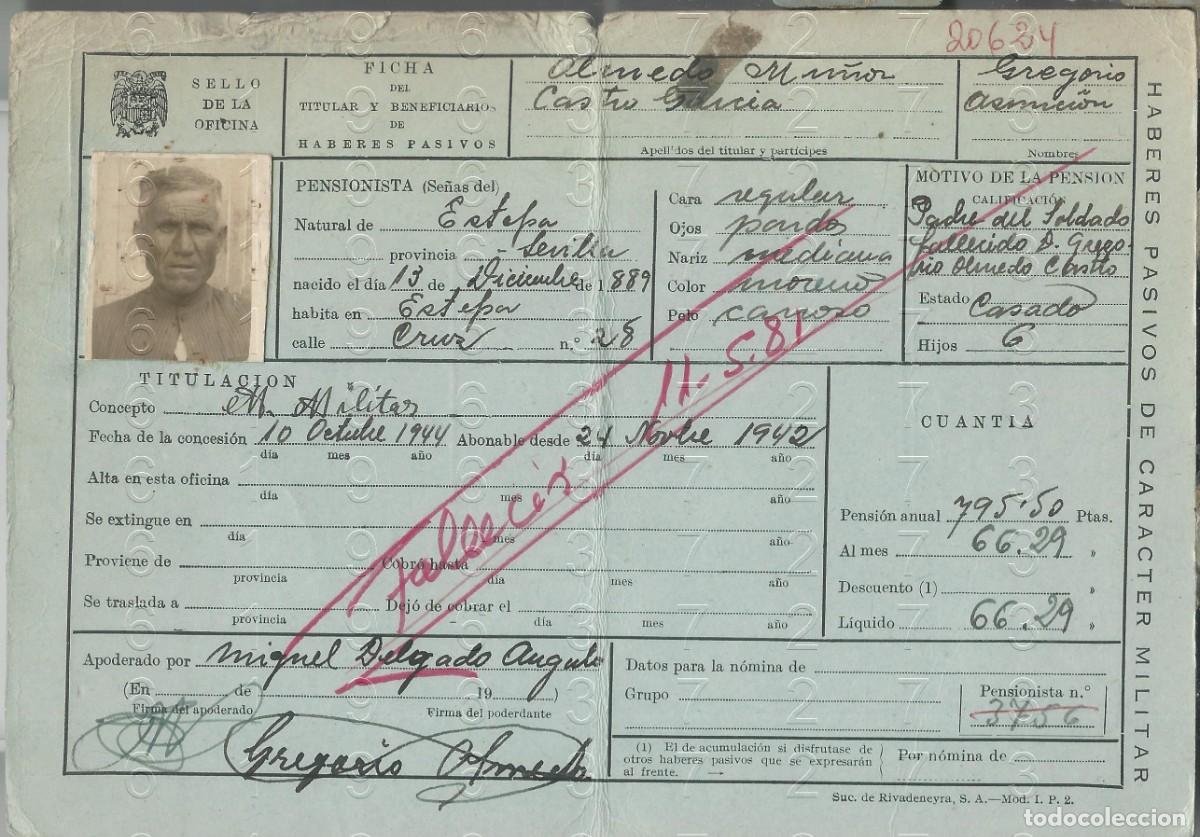 20634
SELLO
DE LA
OFICINA
FICHA
DEL
TITULAR Y BENEFICIARIOS
DE
HABERES PASIVOS
Olmedo Muñoz
Castro Garcia
Apellidos del titular y partícipes
Gregorio
Asunción
Nombres
HABERES PASIVOS DE CARACTER MILITAR
PENSIONISTA (Señas del)
Natural de Estepa
provincia Sevilla
nacido el día 13 de Diciembre de 1.889
habita en Estepa
calle Cruz n.° 28
Cara regular
Ojos pardos
Nariz mediana
Color moreno
Pelo canoso
MOTIVO DE LA PENSION
CALIFICACIÓN
Padre del Soldado
fallecido D. Grego-
rio Olmedo Castro
Estado Casado
Hijos 6
TITULACION
Concepto M. Militar
Fecha de la concesión 10 Octubre 1944 Abonable desde 24 Novbre 1942
día mes año día mes año
Alta en esta oficina
día mes año
Se extingue en
día mes año
Proviene de Cobró hasta
provincia día mes año
Se traslada a Dejó de cobrar el
provincia día mes año
Falleció 11-5-81
CUANTIA
Pensión anual 795'50 Ptas.
Al mes 66.29 »
Descuento (1) »
Líquido 66.29 »
Apoderado por Miguel Delgado Angulo
(En de 19 )
Firma del apoderado Firma del poderdante
Gregorio Olmedo
Datos para la nómina de
Grupo
Pensionista n.°
3756
(1) El de acumulación si disfrutase de
otros haberes pasivos que se expresarán
al frente. →
Por nómina de
Suc. de Rivadeneyra, S. A.—Mod. I. P. 2.
todocoleccion